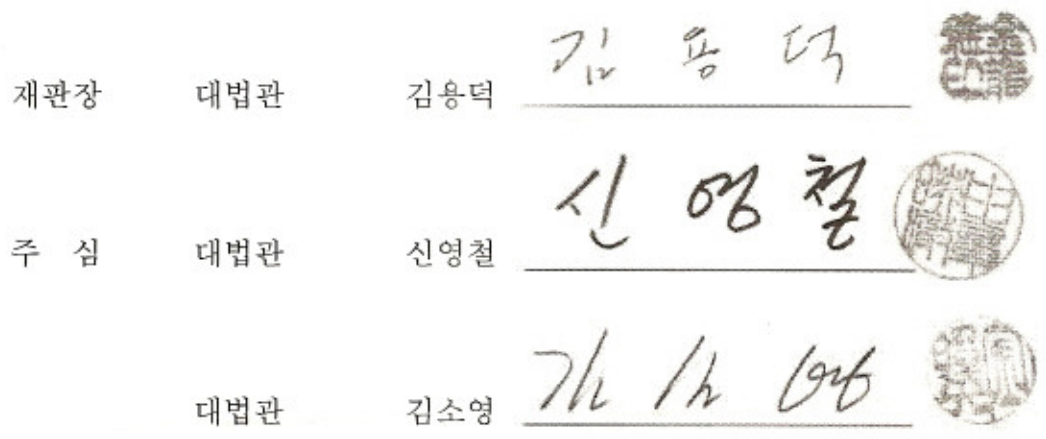 재판장 대법관 김용덕 김 용 덕
주 심 대법관 신영철 신 영 철
대법관 김소영 김 소 영